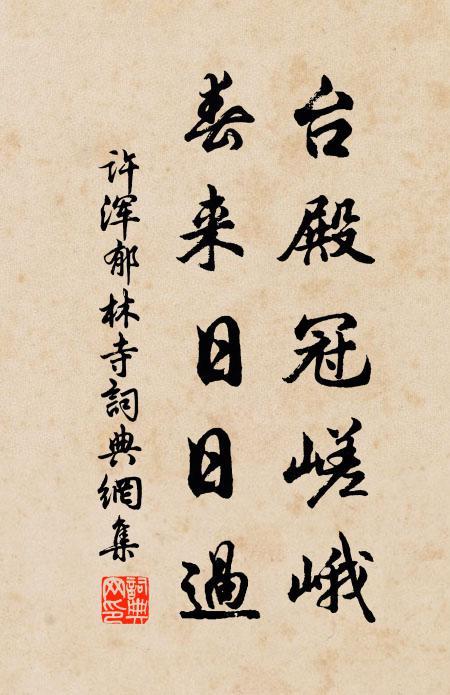 台殿冠嵯峨
春来日日過
许浑郁林寺詞典網集
詞典網印